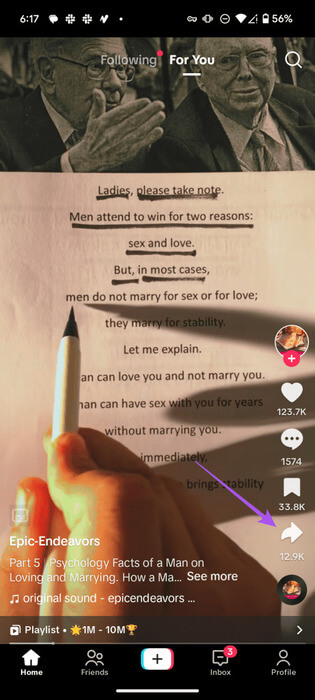 6:17
56%
Following
For You
Ladies, please take note.
Men attend to win for two reasons:
sex and love.
But, in most cases,
men do not marry for sex or for love;
they marry for stability.
Let me explain.
an can love you and not marry you.
nan can have sex with you for years
without marrying you.
immediately,
brings stability
123.7K
1574
33.8K
12.9K
Epic-Endeavors
Part 5 Psychology Facts of a Man on
Loving and Marrying. How a Ma... See more
original sound - epicendeavors ...
Playlist • 🌟1M - 10M🏆
Home
Friends
3
Inbox
Profile